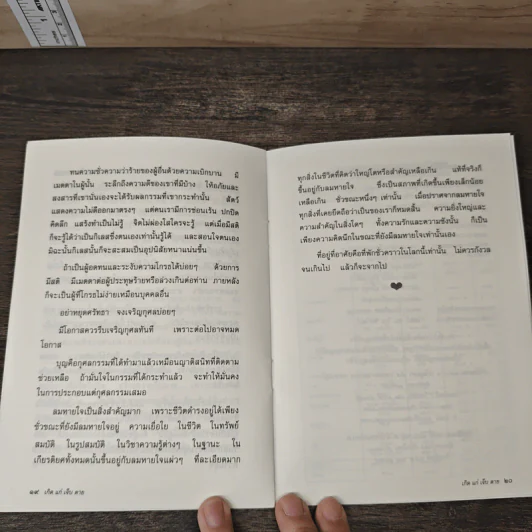 ทนความชั่วความว่าร้ายของผู้อื่นด้วยความเบิกบาน มี
เมตตาในผู้นั้น ระลึกถึงความดีของเขาที่มีบ้าง ให้อภัยและ
สงสารที่เขานั้นเองจะได้รับผลกรรมที่เขากระทำนั้น สัตว์
แสดงความไม่ดีออกมาตรงๆ แต่คนเรามีการซ่อนเร้น ปกปิด
คิดลึก แสร้งทำเป็นไม่รู้ จิตไม่ผ่องใสใครจะรู้ แต่เมื่อมีสติ
ก็จะรู้ได้ว่าเป็นกิเลสซึ่งตนเองเท่านั้นรู้ได้ และสอนใจตนเอง
มิฉะนั้นกิเลสนั้นก็จะสะสมเป็นอุปนิสัยหนาแน่นขึ้น
ถ้าเป็นผู้อดทนและระงับความโกรธได้บ่อยๆ ด้วยการ
มีสติ มีเมตตาต่อผู้ประทุษร้ายหรือล่วงเกินต่อท่าน ภายหลัง
ก็จะเป็นผู้ที่โกรธไม่ง่ายเหมือนบุคคลอื่น
อย่าหยุดศรัทธา จงเจริญกุศลบ่อยๆ
มีโอกาสควรรีบเจริญกุศลทันที เพราะต่อไปอาจหมด
โอกาส
บุญคือกุศลกรรมที่ได้ทำมาแล้วเหมือนญาติสนิทที่ติดตาม
ช่วยเหลือ ถ้ามั่นใจในกรรมที่ได้กระทำแล้ว จะทำให้มั่นคง
ในการประกอบแต่กุศลกรรมเสมอ
ลมหายใจเป็นสิ่งสำคัญมาก เพราะชีวิตดำรงอยู่ได้เพียง
ชั่วขณะที่ยังมีลมหายใจอยู่ ความเยื่อใย ในชีวิต ในทรัพย์
สมบัติ ในรูปสมบัติ ในวิชาความรู้ต่างๆ ในฐานะ ใน
เกียรติยศทั้งหมดนั้นขึ้นอยู่กับลมหายใจแผ่วๆ ที่ละเอียดมาก
๑๙ เกิด แก่ เจ็บ ตาย
ทุกสิ่งในชีวิตที่คิดว่าใหญ่โตหรือสำคัญเหลือเกิน แท้ที่จริงก็
ขึ้นอยู่กับลมหายใจ ซึ่งเป็นสภาพที่เกิดขึ้นเพียงเล็กน้อย
เหลือเกิน ชั่วขณะหนึ่งๆ เท่านั้น เมื่อปราศจากลมหายใจ
ทุกสิ่งที่เคยยึดถือว่าเป็นของเราก็หมดสิ้น ความยิ่งใหญ่และ
ความสำคัญในสิ่งใดๆ ทั้งความรักและความชังนั้น ก็เป็น
เพียงความคิดนึกในขณะที่ยังมีลมหายใจเท่านั้นเอง
ที่อยู่ที่อาศัยคือที่พักชั่วคราวในโลกนี้เท่านั้น ไม่ควรกังวล
จนเกินไป แล้วก็จะจากไป
เกิด แก่ เจ็บ ตาย ๒๐